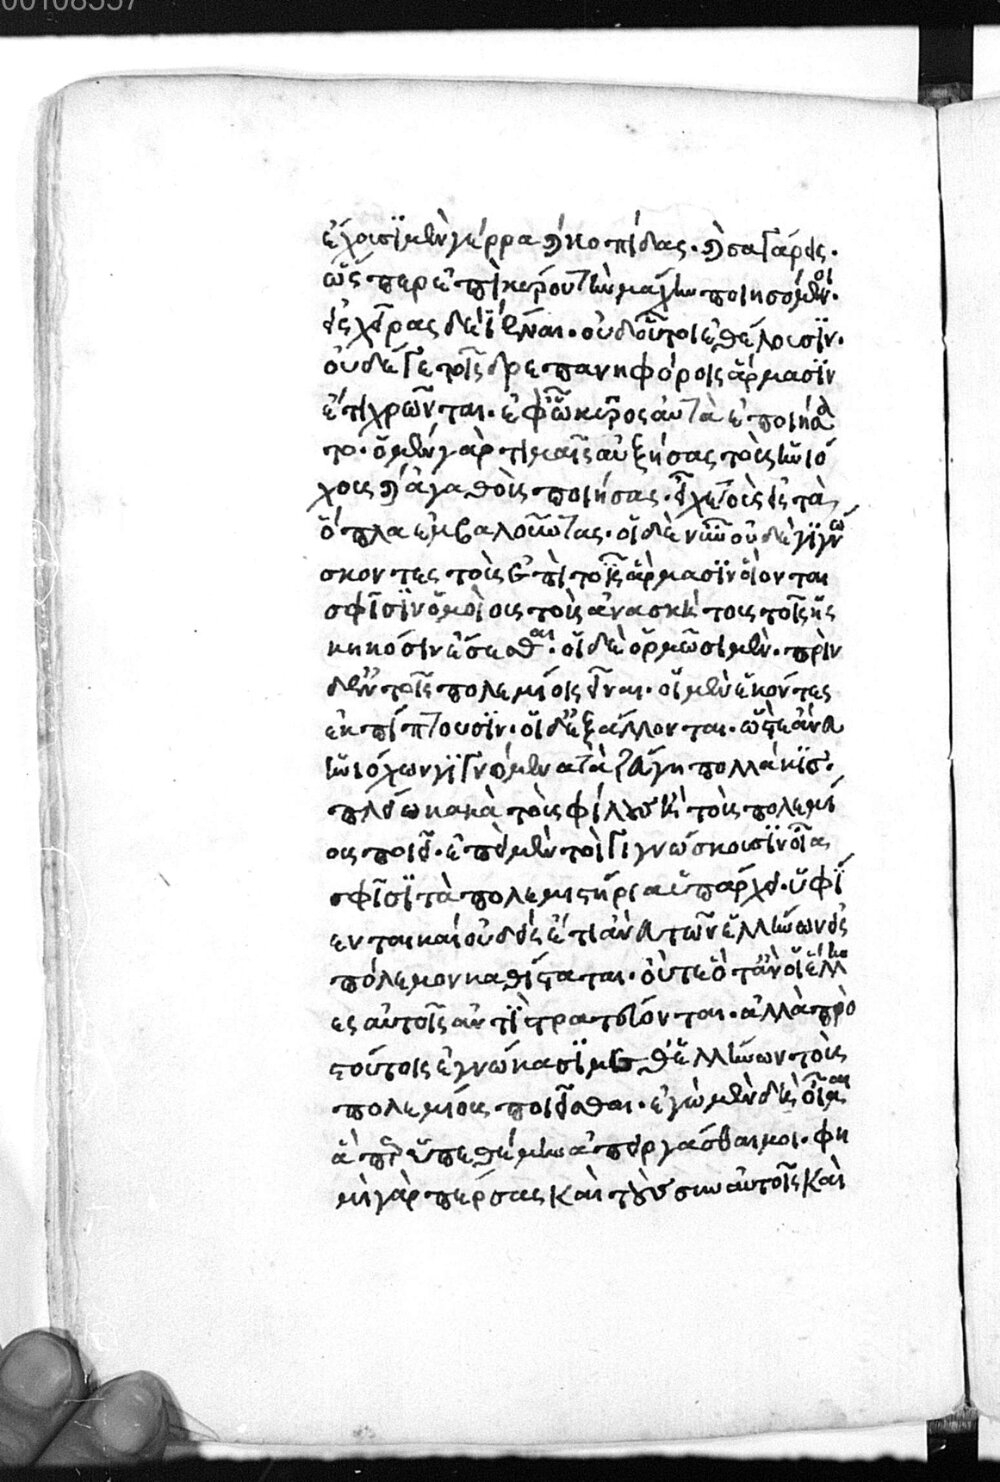 00108557
ἔχουσϊ μὲν γέρρα καὶ κοπίδας. καὶ σαγάρεις.
ὥς περ ἐπὶ κύρου τὴν μάχην ποιησόμενοι.
εἰς χεῖρας δὲ ϊέναι. οὐδ οὗτοι ἐθέλουσϊν.
οὐδέ γε τοῖς δρεπανηφόροις ἅρμασϊν
ἔτι χρῶνται. ἐφ ᾧ κῦρος αὐτὰ ἐποιήσα
το. ὁ μὲν γὰρ τιμαῖς αὐξήσας τοὺς ἡνιό
χους καὶ ἀγαθοὺς ποιήσας. εἶχε τοὺς εἰς τὰ
ὅπλα ἐμβαλοῦντας. οἱ δὲ νῦν οὐδὲ γϊγνώ
σκοντες τοὺς ἐπὶ τοῖς ἅρμασϊν οἴονται
σφΐσϊν ὁμοίους τοὺς ἀνασκήτους τοῖς ἠς
κηκόσιν ἔσεσθαι. οἱ δὲ ὁρμῶσι μὲν. πρὶν
δ ἐν τοῖς πολεμίοις εἶναι. οἱ μὲν ἑκόντες
ἐκπίπτουσϊν. οἱ δ ἐξάλλονται. ὥστε ἄνευ
ἡνιόχων γϊγνόμενα τὰ ζεύγη πολλάκϊς.
πλείω κακὰ τοὺς φίλους ἢ τοὺς πολεμί
ους ποιεῖ. ἐπεὶ μέντοι γιγνώσκουσϊν οἷα
σφΐσϊ τὰ πολεμιστήρια ὑπάρχει. ὑφί
ενται καὶ οὐδεὶς ἔτι ἄνευ τῶν ἑλλήνων εἰς
πόλεμον καθίσταται. οὔτε ὅταν οἱ ἕλλην
ες αὐτοῖς ἀντϊστρατεύονται. ἀλλὰ πρὸ
τούτοις ἐγνώκασϊ μεθ ἑλλήνων τοὺς
πολεμίους ποιεῖσθαι. ἐγὼ μὲν δὴ οἶμαι
ἅπερ ὑπεθέμην ἀπειργάσθαι μοι. φη
μὶ γὰρ πέρσας καὶ τοὺς σὺν αὐτοῖς καὶ